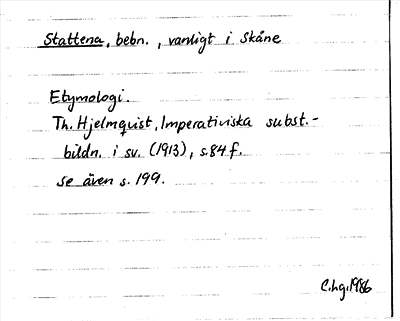 Stattena, bebn., vanligt i Skåne
Etymologi.
Th. Hjelmquist, Imperativiska subst.-
bildn. i sv. (1913), s.84f.
se även s. 199.
C.hg.1986